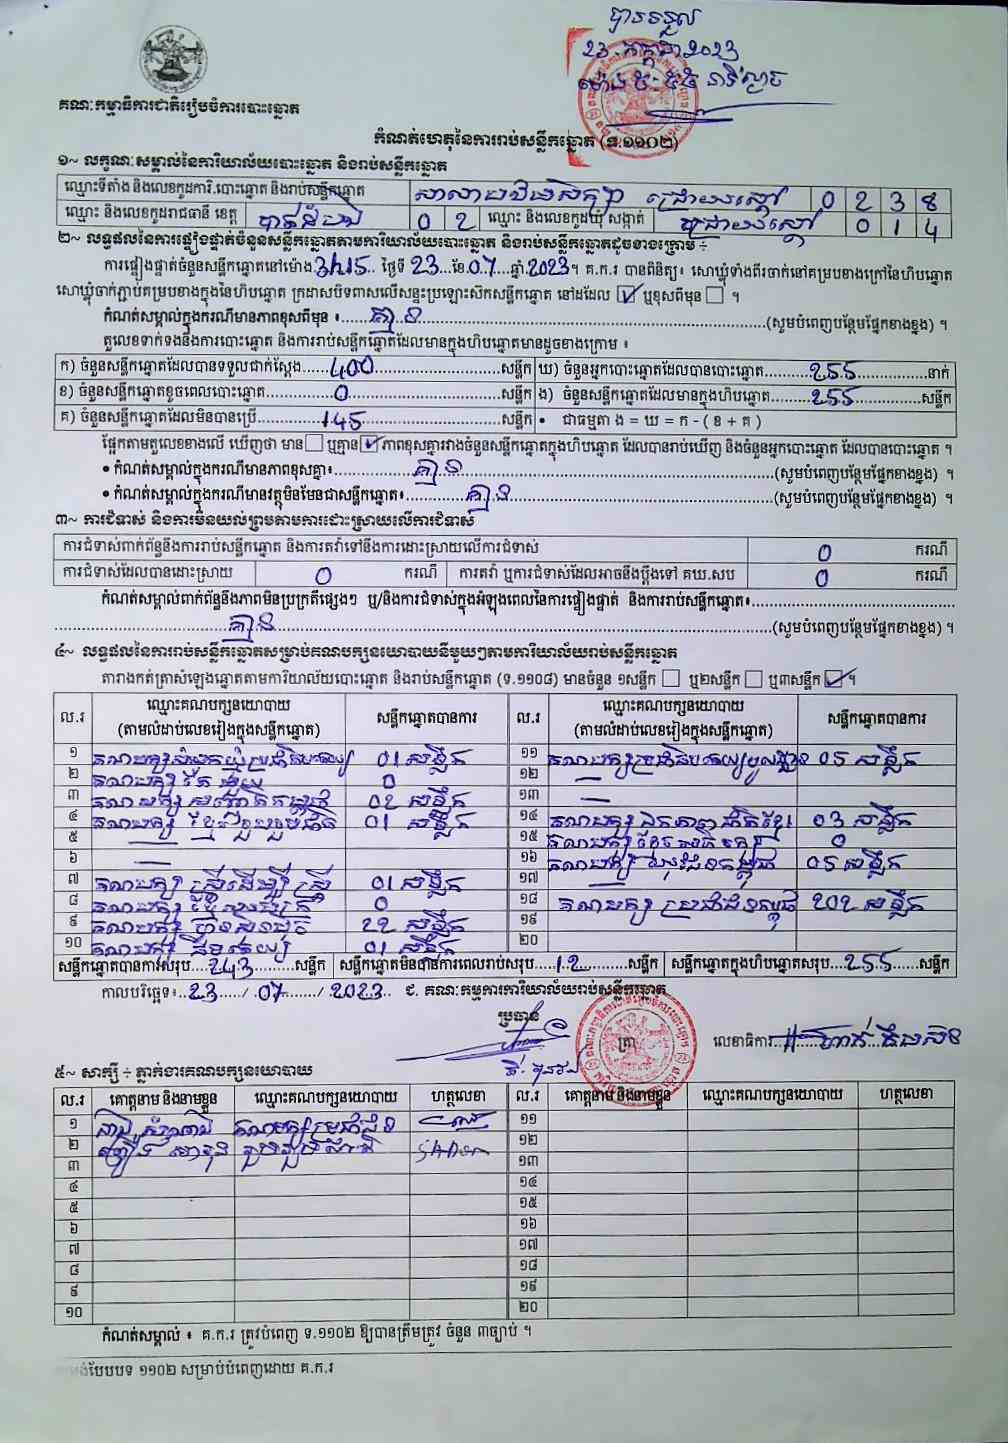 បានទទួល
23. កក្កដា 2023
ម៉ោង ៥:៥៥ នាទីល្ងាច
គណៈកម្មាធិការជាតិរៀបចំការបោះឆ្នោត
កំណត់ហេតុនៃការរាប់សន្លឹកឆ្នោត (ទ.១១០២)
១~ លក្ខណៈសម្គាល់នៃការិយាល័យបោះឆ្នោត និងរាប់សន្លឹកឆ្នោត
ឈ្មោះទីតាំង និងលេខកូដការិ.បោះឆ្នោត និងរាប់សន្លឹកឆ្នោត សាលាបឋមសិក្សា ជ្រោយស្តៅ 0 2 3 8
ឈ្មោះ និងលេខកូដរាជធានី ខេត្ត បាត់ដំបង 0 2 ឈ្មោះ និងលេខកូដឃុំ សង្កាត់ ជ្រោយស្តៅ 0 1 4
២~ លទ្ធផលនៃការផ្ទៀងផ្ទាត់ចំនួនសន្លឹកឆ្នោតតាមការិយាល័យបោះឆ្នោត និងរាប់សន្លឹកឆ្នោតដូចខាងក្រោម ៖
ការផ្ទៀងផ្ទាត់ចំនួនសន្លឹកឆ្នោតនៅម៉ោង 3h15 ថ្ងៃទី 23 ខែ 07 ឆ្នាំ 2023។ គ.ក.រ បានពិនិត្យ៖ សោឃ្លុំទាំងពីរចាក់នៅគម្របខាងក្រៅនៃហិបឆ្នោត
សោឃ្លុំចាក់ភ្ជាប់គម្របខាងក្នុងនៃហិបឆ្នោត ក្រដាសបិទពាសលើសន្ទះប្រឡោះស៊កសន្លឹកឆ្នោត នៅដដែល ☑ ឬខុសពីមុន ☐ ។
កំណត់សម្គាល់ក្នុងករណីមានភាពខុសពីមុន ៖ គ្មាន (សូមបំពេញបន្ថែមផ្នែកខាងខ្នង) ។
តួលេខទាក់ទងនឹងការបោះឆ្នោត និងការរាប់សន្លឹកឆ្នោតដែលមានក្នុងហិបឆ្នោតមានដូចខាងក្រោម ៖
ក) ចំនួនសន្លឹកឆ្នោតដែលបានទទួលជាក់ស្តែង 400 សន្លឹក ឃ) ចំនួនអ្នកបោះឆ្នោតដែលបានបោះឆ្នោត 255 នាក់
ខ) ចំនួនសន្លឹកឆ្នោតខូចពេលបោះឆ្នោត 0 សន្លឹក ង) ចំនួនសន្លឹកឆ្នោតដែលមានក្នុងហិបឆ្នោត 255 សន្លឹក
គ) ចំនួនសន្លឹកឆ្នោតដែលមិនបានប្រើ 145 សន្លឹក • ជាធម្មតា ង = ឃ = ក - ( ខ + គ )
ផ្អែកតាមតួលេខខាងលើ ឃើញថា មាន ☐ ឬគ្មាន ☑ ភាពខុសគ្នារវាងចំនួនសន្លឹកឆ្នោតក្នុងហិបឆ្នោត ដែលបានរាប់ឃើញ និងចំនួនអ្នកបោះឆ្នោត ដែលបានបោះឆ្នោត ។
• កំណត់សម្គាល់ក្នុងករណីមានភាពខុសគ្នា៖ គ្មាន (សូមបំពេញបន្ថែមផ្នែកខាងខ្នង) ។
• កំណត់សម្គាល់ក្នុងករណីមានវត្ថុមិនមែនជាសន្លឹកឆ្នោត៖ គ្មាន (សូមបំពេញបន្ថែមផ្នែកខាងខ្នង) ។
៣~ ការជំទាស់ និងការមិនយល់ព្រមតាមការដោះស្រាយលើការជំទាស់
ការជំទាស់ពាក់ព័ន្ធនឹងការរាប់សន្លឹកឆ្នោត និងការតវ៉ាទៅនឹងការដោះស្រាយលើការជំទាស់ 0 ករណី
ការជំទាស់ដែលបានដោះស្រាយ 0 ករណី ការតវ៉ា ឬការជំទាស់ដែលអាចនឹងប្តឹងទៅ គឃ.សប 0 ករណី
កំណត់សម្គាល់ពាក់ព័ន្ធនឹងភាពមិនប្រក្រតីផ្សេងៗ ឬ/និងការជំទាស់ក្នុងអំឡុងពេលនៃការផ្ទៀងផ្ទាត់ និងការរាប់សន្លឹកឆ្នោត៖
គ្មាន (សូមបំពេញបន្ថែមផ្នែកខាងខ្នង) ។
៤~ លទ្ធផលនៃការរាប់សន្លឹកឆ្នោតសម្រាប់គណបក្សនយោបាយនីមួយៗតាមការិយាល័យរាប់សន្លឹកឆ្នោត
តារាងកត់ត្រាសំឡេងឆ្នោតតាមការិយាល័យបោះឆ្នោត និងរាប់សន្លឹកឆ្នោត (ទ.១១០៨) មានចំនួន ១សន្លឹក ☐ ឬ២សន្លឹក ☐ ឬ៣សន្លឹក ☑ ។
ល.រ ឈ្មោះគណបក្សនយោបាយ (តាមលំដាប់លេខរៀងក្នុងសន្លឹកឆ្នោត) សន្លឹកឆ្នោតបានការ ល.រ ឈ្មោះគណបក្សនយោបាយ (តាមលំដាប់លេខរៀងក្នុងសន្លឹកឆ្នោត) សន្លឹកឆ្នោតបានការ
១ គណបក្សសំបុកឃ្មុំប្រជាធិបតេយ្យ 01 សន្លឹក ១១ គណបក្សប្រជាធិបតេយ្យមូលដ្ឋាន 05 សន្លឹក
២ គណបក្ស 0 ១២ —
៣ គណបក្ស 02 សន្លឹក ១៣ —
៤ គណបក្ស ខ្មែររួបរួមជាតិ 01 សន្លឹក ១៤ គណបក្ស ឯកភាពជាតិខ្មែរ 03 សន្លឹក
៥ — ១៥ គណបក្ស 0
៦ — ១៦ គណបក្ស យុវជនកម្ពុជា 05 សន្លឹក
៧ គណបក្ស ស្ត្រីដើម្បីស្ត្រី 01 សន្លឹក ១៧ —
៨ គណបក្ស 0 ១៨ គណបក្ស ប្រជាជនកម្ពុជា 202 សន្លឹក
៩ គណបក្ស ហ្វ៊ុនស៊ិនប៉ិច 22 សន្លឹក ១៩
១០ គណបក្ស ធម្មាធិបតេយ្យ 01 សន្លឹក ២០
សន្លឹកឆ្នោតបានការសរុប 243 សន្លឹក សន្លឹកឆ្នោតមិនបានការពេលរាប់សរុប 12 សន្លឹក សន្លឹកឆ្នោតក្នុងហិបឆ្នោតសរុប 255 សន្លឹក
កាលបរិច្ឆេទ៖ 23 / 07 / 2023 ជ. គណៈកម្មការការិយាល័យរាប់សន្លឹកឆ្នោត
ប្រធាន ត្រា លេខាធិការ
៥~ សាក្សី ៖ ភ្នាក់ងារគណបក្សនយោបាយ
ល.រ គោត្តនាម និងនាមខ្លួន ឈ្មោះគណបក្សនយោបាយ ហត្ថលេខា ល.រ គោត្តនាម និងនាមខ្លួន ឈ្មោះគណបក្សនយោបាយ ហត្ថលេខា
១ គណបក្សប្រជាជន ១១
២ ១២
៣ ១៣
៤ ១៤
៥ ១៥
៦ ១៦
៧ ១៧
៨ ១៨
៩ ១៩
១០ ២០
កំណត់សម្គាល់ ៖ គ.ក.រ ត្រូវបំពេញ ទ.១១០២ ឱ្យបានត្រឹមត្រូវ ចំនួន ៣ច្បាប់ ។
បែបបទ ១១០២ សម្រាប់បំពេញដោយ គ.ក.រ